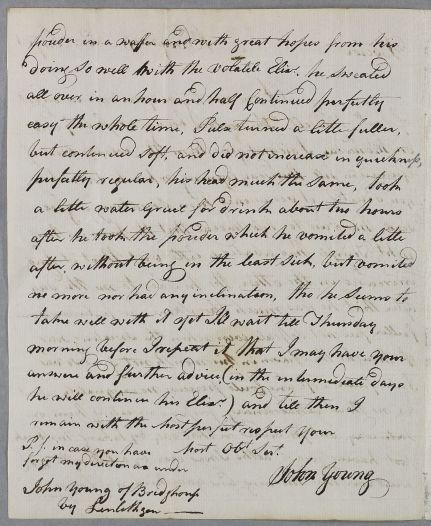 pouder in a waffer and with great hopes from his
doing so well with the volatile Elix.r he sweated
all over in an hour and half Continued perfectly
easy the whole time, Puls turned a little fuller,
but continued soft, and did not increase in quickness,
perfectly regular, his head much the same, took
a little water Gruel for drink about two hours
after he took the pouder which he vomited a little
after, without being in the least sick, but vomited
no more nor had any inclination, tho he seems to
take well with it yet I'll wait till Thursday
morning before I repeat it that I may have your
answere and further advice (in the intermediate days
he will continue his Elix.r) and till then I
remain with the most perfect respect your
most Ob.t Ser.t
John Young
P.S. in case you have
forgot my direction as under
John Young of Bridghous
by Linlithgow